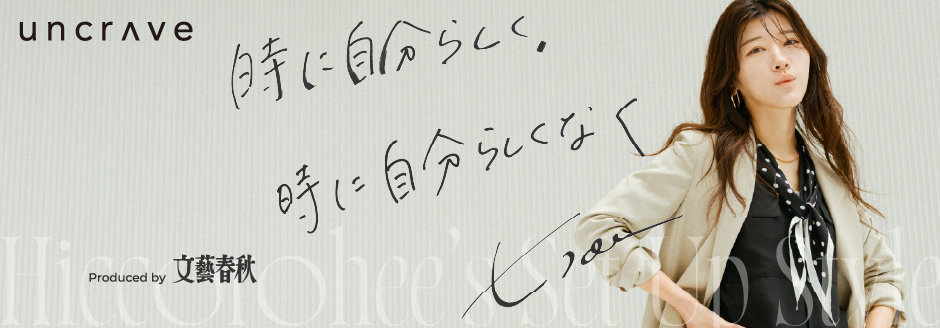 uncrave
時に自分らしく、
時に自分らしくなく
Produced by 文藝春秋
Hiccorohee's Set Up Style